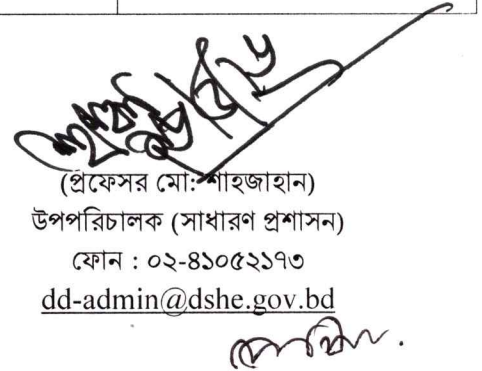 (প্রফেসর মো: শাহজাহান)
উপপরিচালক (সাধারণ প্রশাসন)
ফোন : ০২-৪১০৫২১৭৩
dd-admin@dshe.gov.bd